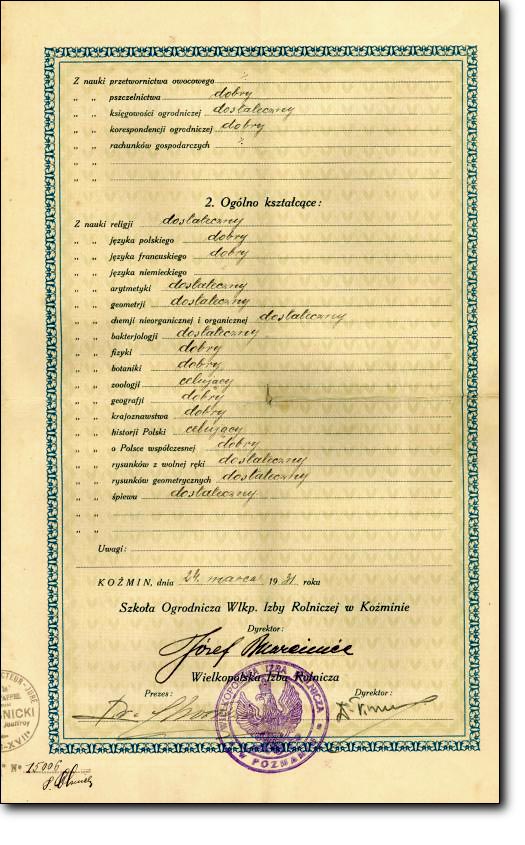 Z nauki przetwornictwa owocowego
" " pszczelnictwa dobry
" " księgowości ogrodniczej dostateczny
" " korespondencji ogrodniczej dobry
" " rachunków gospodarczych
" "
" "
2. Ogólno kształcące:
Z nauki religji dostateczny
" " języka polskiego dobry
" " języka francuskiego dobry
" " języka niemieckiego
" " arytmetyki dostateczny
" " geometrji dostateczny
" " chemji nieorganicznej i organicznej dostateczny
" " bakterjologji dostateczny
" " fizyki dobry
" " botaniki dobry
" " zoologji celujący
" " geografji dobry
" " krajoznawstwa dobry
" " historji Polski celujący
" " o Polsce współczesnej dobry
" " rysunków z wolnej ręki dostateczny
" " rysunków geometrycznych dostateczny
" " śpiewu dostateczny
" "
" "
Uwagi:
KOŹMIN, dnia 24. marca 1931 roku
Szkoła Ogrodnicza Wlkp. Izby Rolniczej w Koźminie
Dyrektor:
Józef
Wielkopolska Izba Rolnicza
Prezes: Dyrektor:
Dr.
WIELKOPOLSKA IZBA ROLNICZA
W POZNANIU
NICKI
XVII
N° 15006